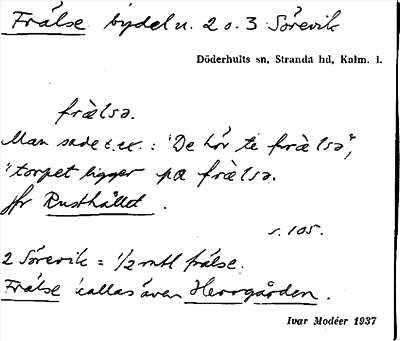 Frälse bydel n. 2 o. 3 Sörevik
Döderhults sn, Stranda hd, Kalm. l.
frälsə.
Man sade t.ex.: "De hör te frälsə",
"torpet ligger pa frälsə.
jfr Rusthållet.
s. 105.
2 Sörevik = 1/2 mtl frälse.
Frälse kallas även Herrgården.
Ivar Modéer 1937